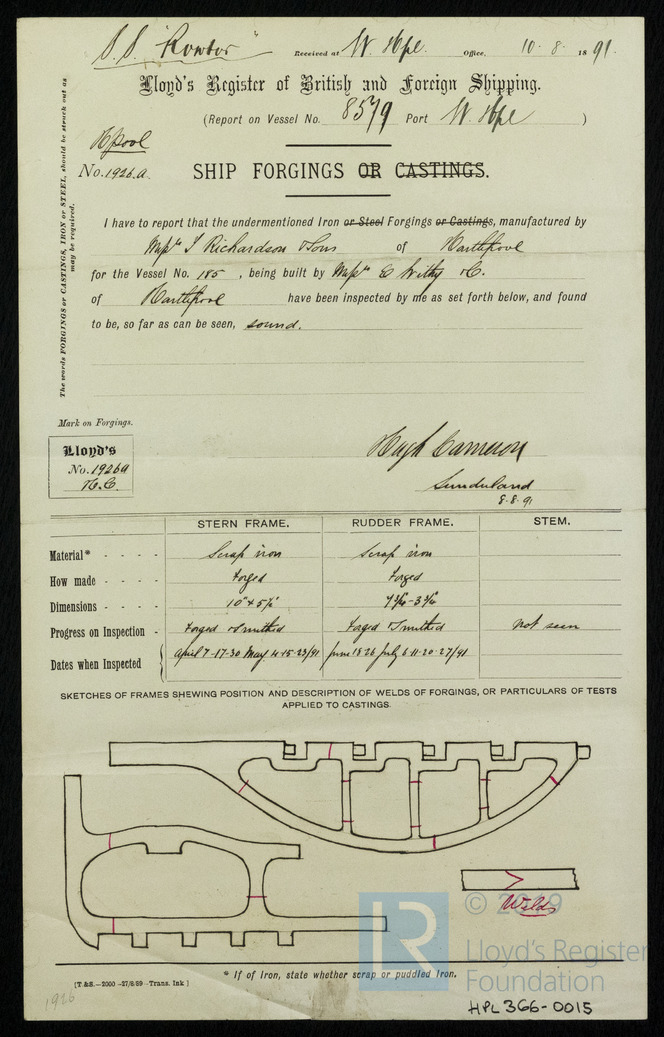 S.S. "Rowtor" Received at W. Hpl. Office, 10. 8. 1891.
Lloyd's Register of British and Foreign Shipping.
(Report on Vessel No. 8579 Port W. Hpl )
Hpool
No. 1926.a. SHIP FORGINGS OR CASTINGS.
The words FORGINGS or CASTINGS, IRON or STEEL, should be struck out as
may be required.
I have to report that the undermentioned Iron or Steel Forgings or Castings, manufactured by
Messrs T Richardson & Sons of Hartlepool
for the Vessel No. 185, being built by Messrs E Withy & Co.
of Hartlepool have been inspected by me as set forth below, and found
to be, so far as can be seen, sound.
Mark on Forgings.
Lloyd's
No. 1926a
H.C.
Hugh Cameron
Sunderland
8.8.91
STERN FRAME. RUDDER FRAME. STEM.
Material* - - - - Scrap iron Scrap iron
How made - - - - Forged Forged
Dimensions - - - - 10" x 5½"
Progress on Inspection - Forged & Smithed Forged & Smithed Not seen
Dates when Inspected April 7-17-30 May 4-15-23/91 June 18 26 July 6-11-20-27/91
SKETCHES OF FRAMES SHEWING POSITION AND DESCRIPTION OF WELDS OF FORGINGS, OR PARTICULARS OF TESTS
APPLIED TO CASTINGS.
Welds
© 2019
LR
Lloyd's Register
Foundation
* If of Iron, state whether scrap or puddled Iron.
[T.&S.—2000 -27/8/89 -Trans. Ink]
1926
HPL366-0015